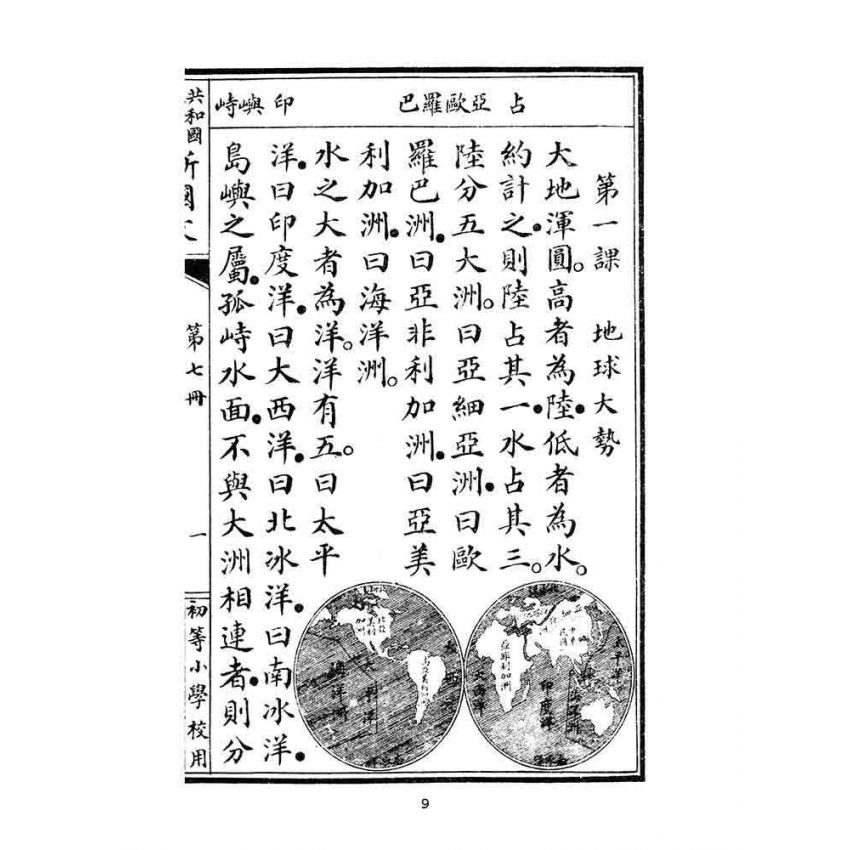 占 亞歐羅巴 印 嶼峙
第一課 地球大勢
大地渾圓。高者為陸。低者為水。
約計之。則陸占其一。水占其三。
陸分五大洲。曰亞細亞洲。曰歐
羅巴洲。曰亞非利加洲。曰亞美
利加洲。曰海洋洲。
水之大者為洋。洋有五。曰太平
洋。曰印度洋。曰大西洋。曰北冰洋。曰南冰洋。
島嶼之屬。孤峙水面。不與大洲相連者。則分
共和國新國文
第七冊
一
初等小學校用
亞非利加洲
大西洋
印度洋
海洋洲
太平洋
9